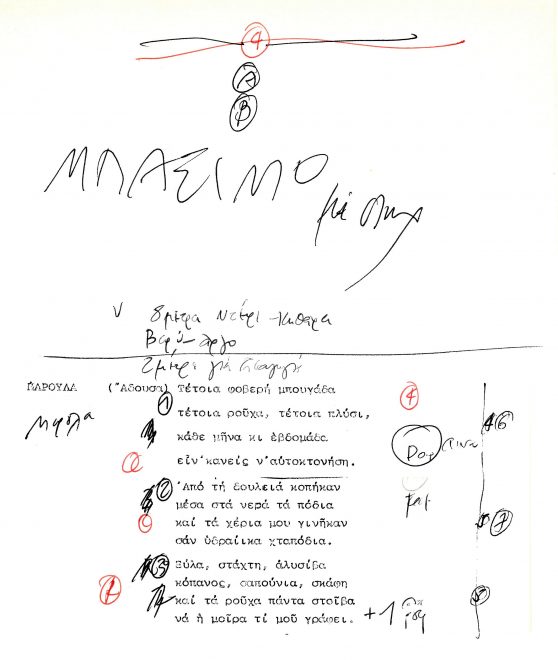 4
A
B
ΜΠΑΣΙΜΟ
V 8μετρα Ντέφι - Κιθάρα
Βαρύ - αργό
2μετρο για Εισαγωγή
ΠΑΡΟΥΛΑ (Ἄδουσα) Τέτοια φοβερή μπουγάδα
1 τέτοια ροῦχα, τέτοια πλύσι,
κάθε μῆνα κι ἑβδομάδα
εἶν'κανείς ν'αὐτοκτονήση.
2 Ἀπό τή δουλειά κοπῆκαν
μέσα στά νερά τά πόδια
καί τά χέρια μου γινῆκαν
σάν ὑδραίικα χταπόδια.
3 Ξύλα, στάχτη, ἀλυσίβα
κόπανος, σαπούνια, σκάφη
καί τά ροῦχα πάντα στοῖβα
νά ἡ μοῖρα τί μοῦ γράφει.
4
6
7
8
+1